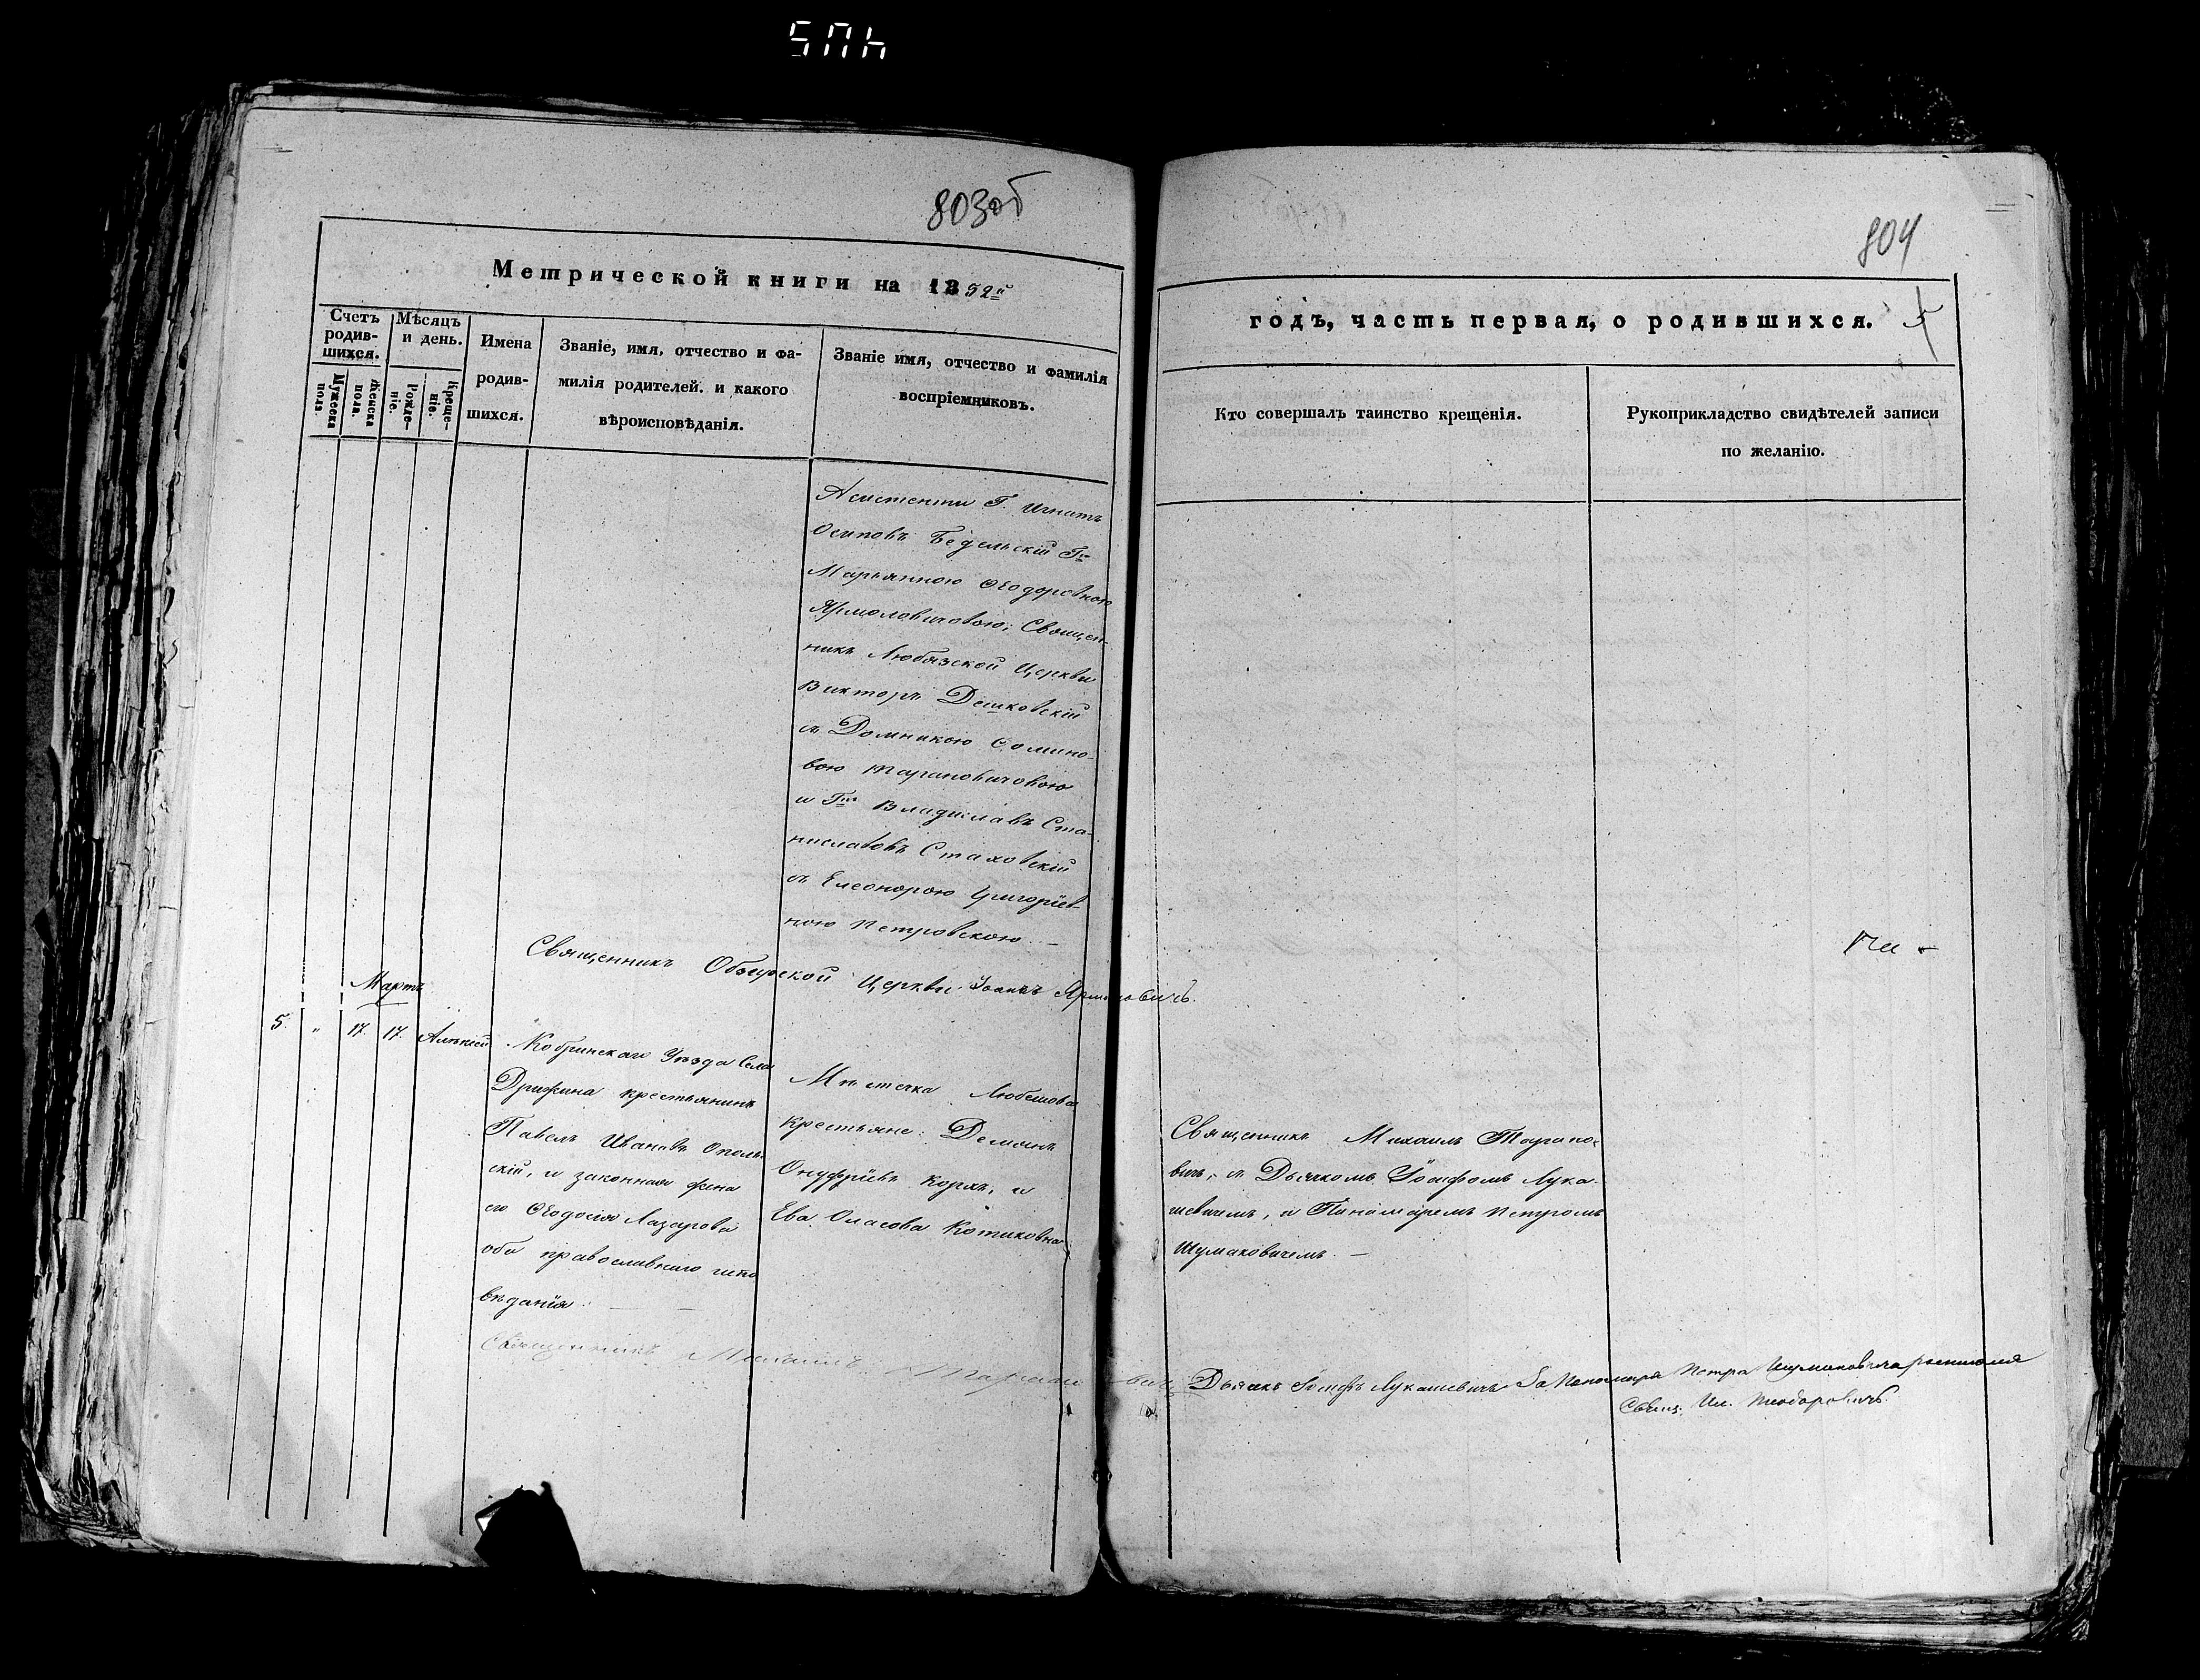 803об
Метрической книги на 1852й
Счетъ родив-шихся.
Мѣсяцъ и день.
Мужеска пола.
Женска пола.
Рожде-ніе.
Креще-ніе.
Имена
родив-
шихся.
Званіе, имя, отчество и фа-
милія родителей. и какого
вѣроисповѣданія.
Званіе имя, отчество и фамилія
воспріемниковъ.
Асистенти Г. Игнатъ
Осиповъ Бедельскій
Марьянною Ѳеодоровною
Ярмоловичовою; Священ-
никъ Любязской Церкви
Викторъ Дешковскій
съ Домникою
вою Тарановичовою
и Владиславъ Ста-
ниславовъ Стаховскій
съ Елеонорою Григоріев-
ною Петровскою. —
Священникъ Обзырской Церкви Іоаннъ Ярмоловичъ.
Мартъ
5. „ 17. 17. Алексѣй
Кобринскаго Уѣзда Села
Дрижина крестьянинъ
Павелъ Ивановъ Ополь-
скій, и законная жена
его Ѳеодосія Лазарова
оба православнаго испо
вѣданія.
Мѣстечка Любешова
крестьяне: Демянъ
Онуфріевъ Корхъ, и
Ева Власова Котиковна
Священникъ Михаилъ Тарановичъ
804
годъ, часть первая, о родившихся. 5
Кто совершалъ таинство крещенія.
Рукоприкладство свидѣтелей записи
по желанію.
Священникъ Михаилъ Тарано-
вичъ, съ Дьячкомъ Іосифомъ Лука-
шевичемъ, и Пономаремъ Петромъ
Шумаковичемъ. —
Дьячекъ Іосифъ Лукашевичъ За Пономаря Петра Шумаковича росписался
Свящ. Теодоровичъ